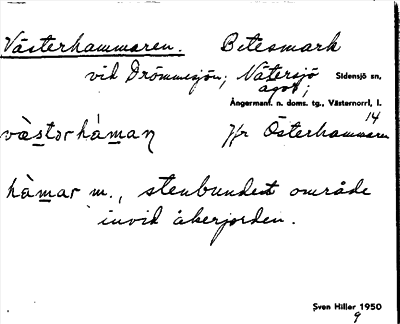 Västerhammaren. Betesmark
vid Drömmesjön; Nätersjö Sidensjö sn,
ägor;
Ångermanl. n. doms. tg., Västernorrl. l.
14
västərhàman Jfr Österhammaren
hàmar m., stenbundet område
invid åkerjorden.
Sven Hiller 1950
9